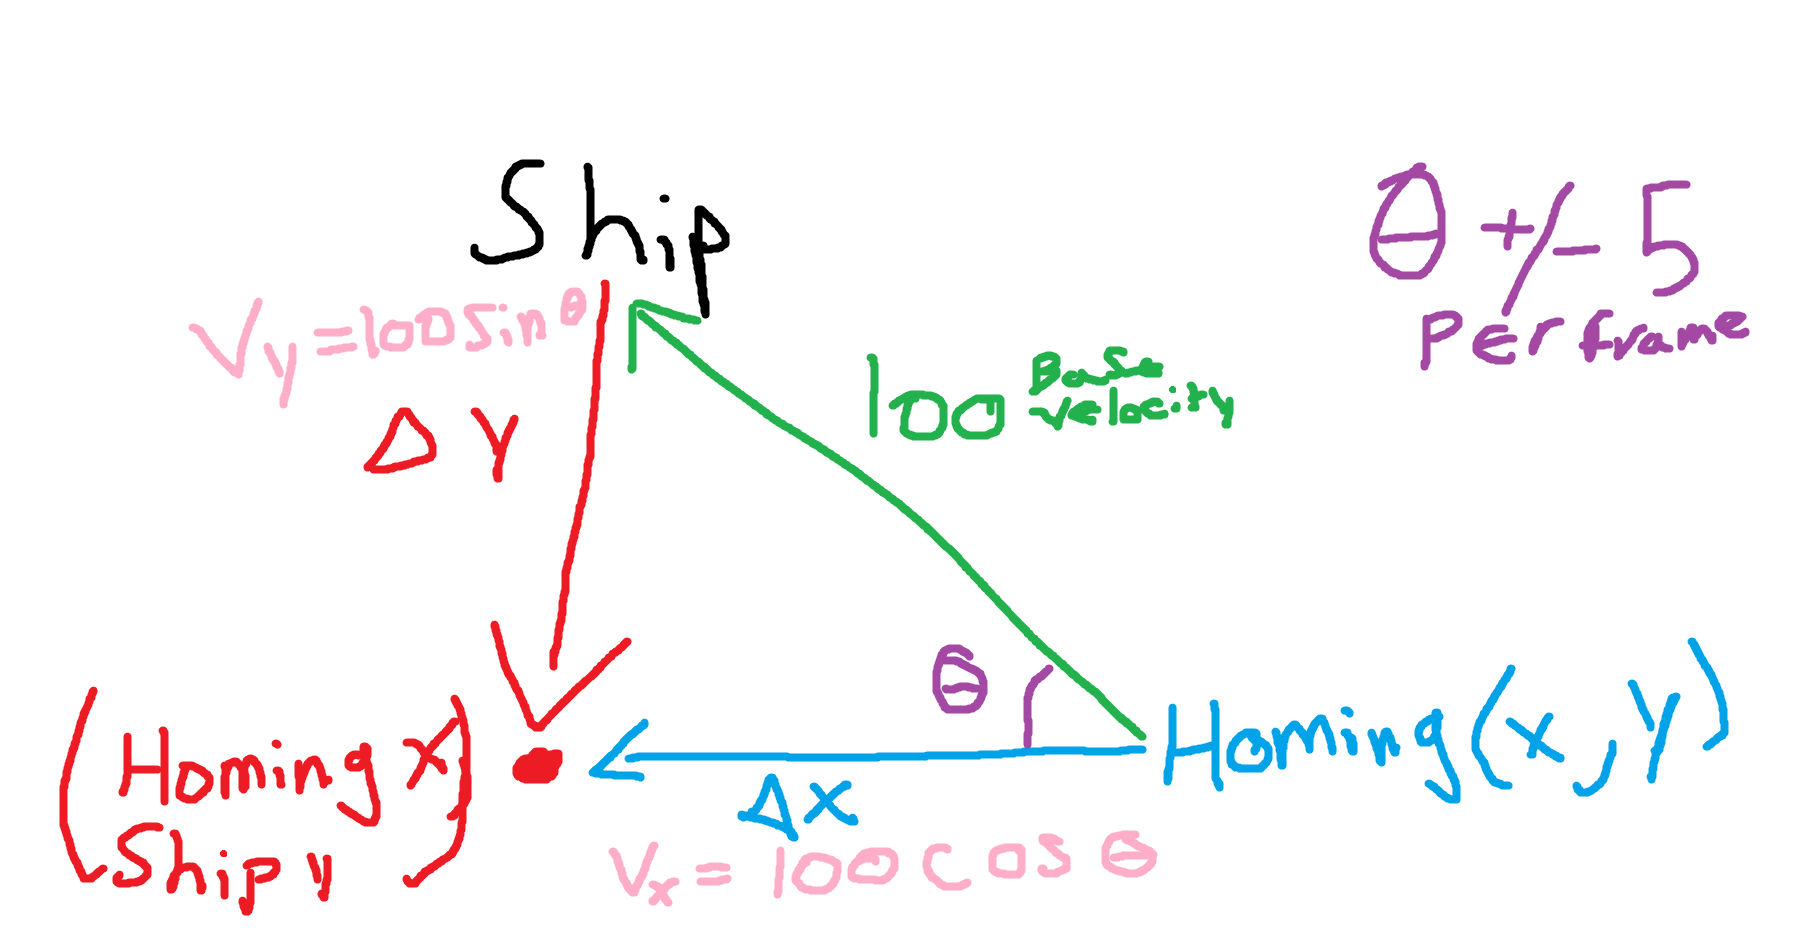 Ship
θ +/- 5
per frame
Vy = 100 sin θ
Δ Y
100 Base
velocity
θ
(Homing x)
Ship y
Homing (x, y)
Δ x
Vx = 100 cos θ